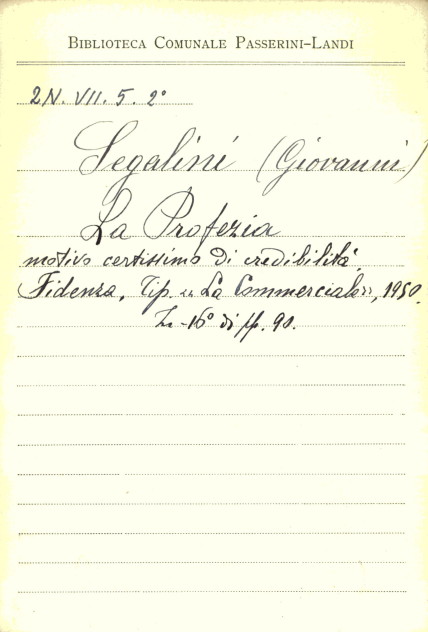 BIBLIOTECA COMUNALE PASSERINI-LANDI
2N. VII. 5. 2°
Segalini (Giovanni)
La Profezia
motivo certissimo di credibilità.
Fidenza, Tip. "La Commerciale", 1950.
In-16° di pp. 90.